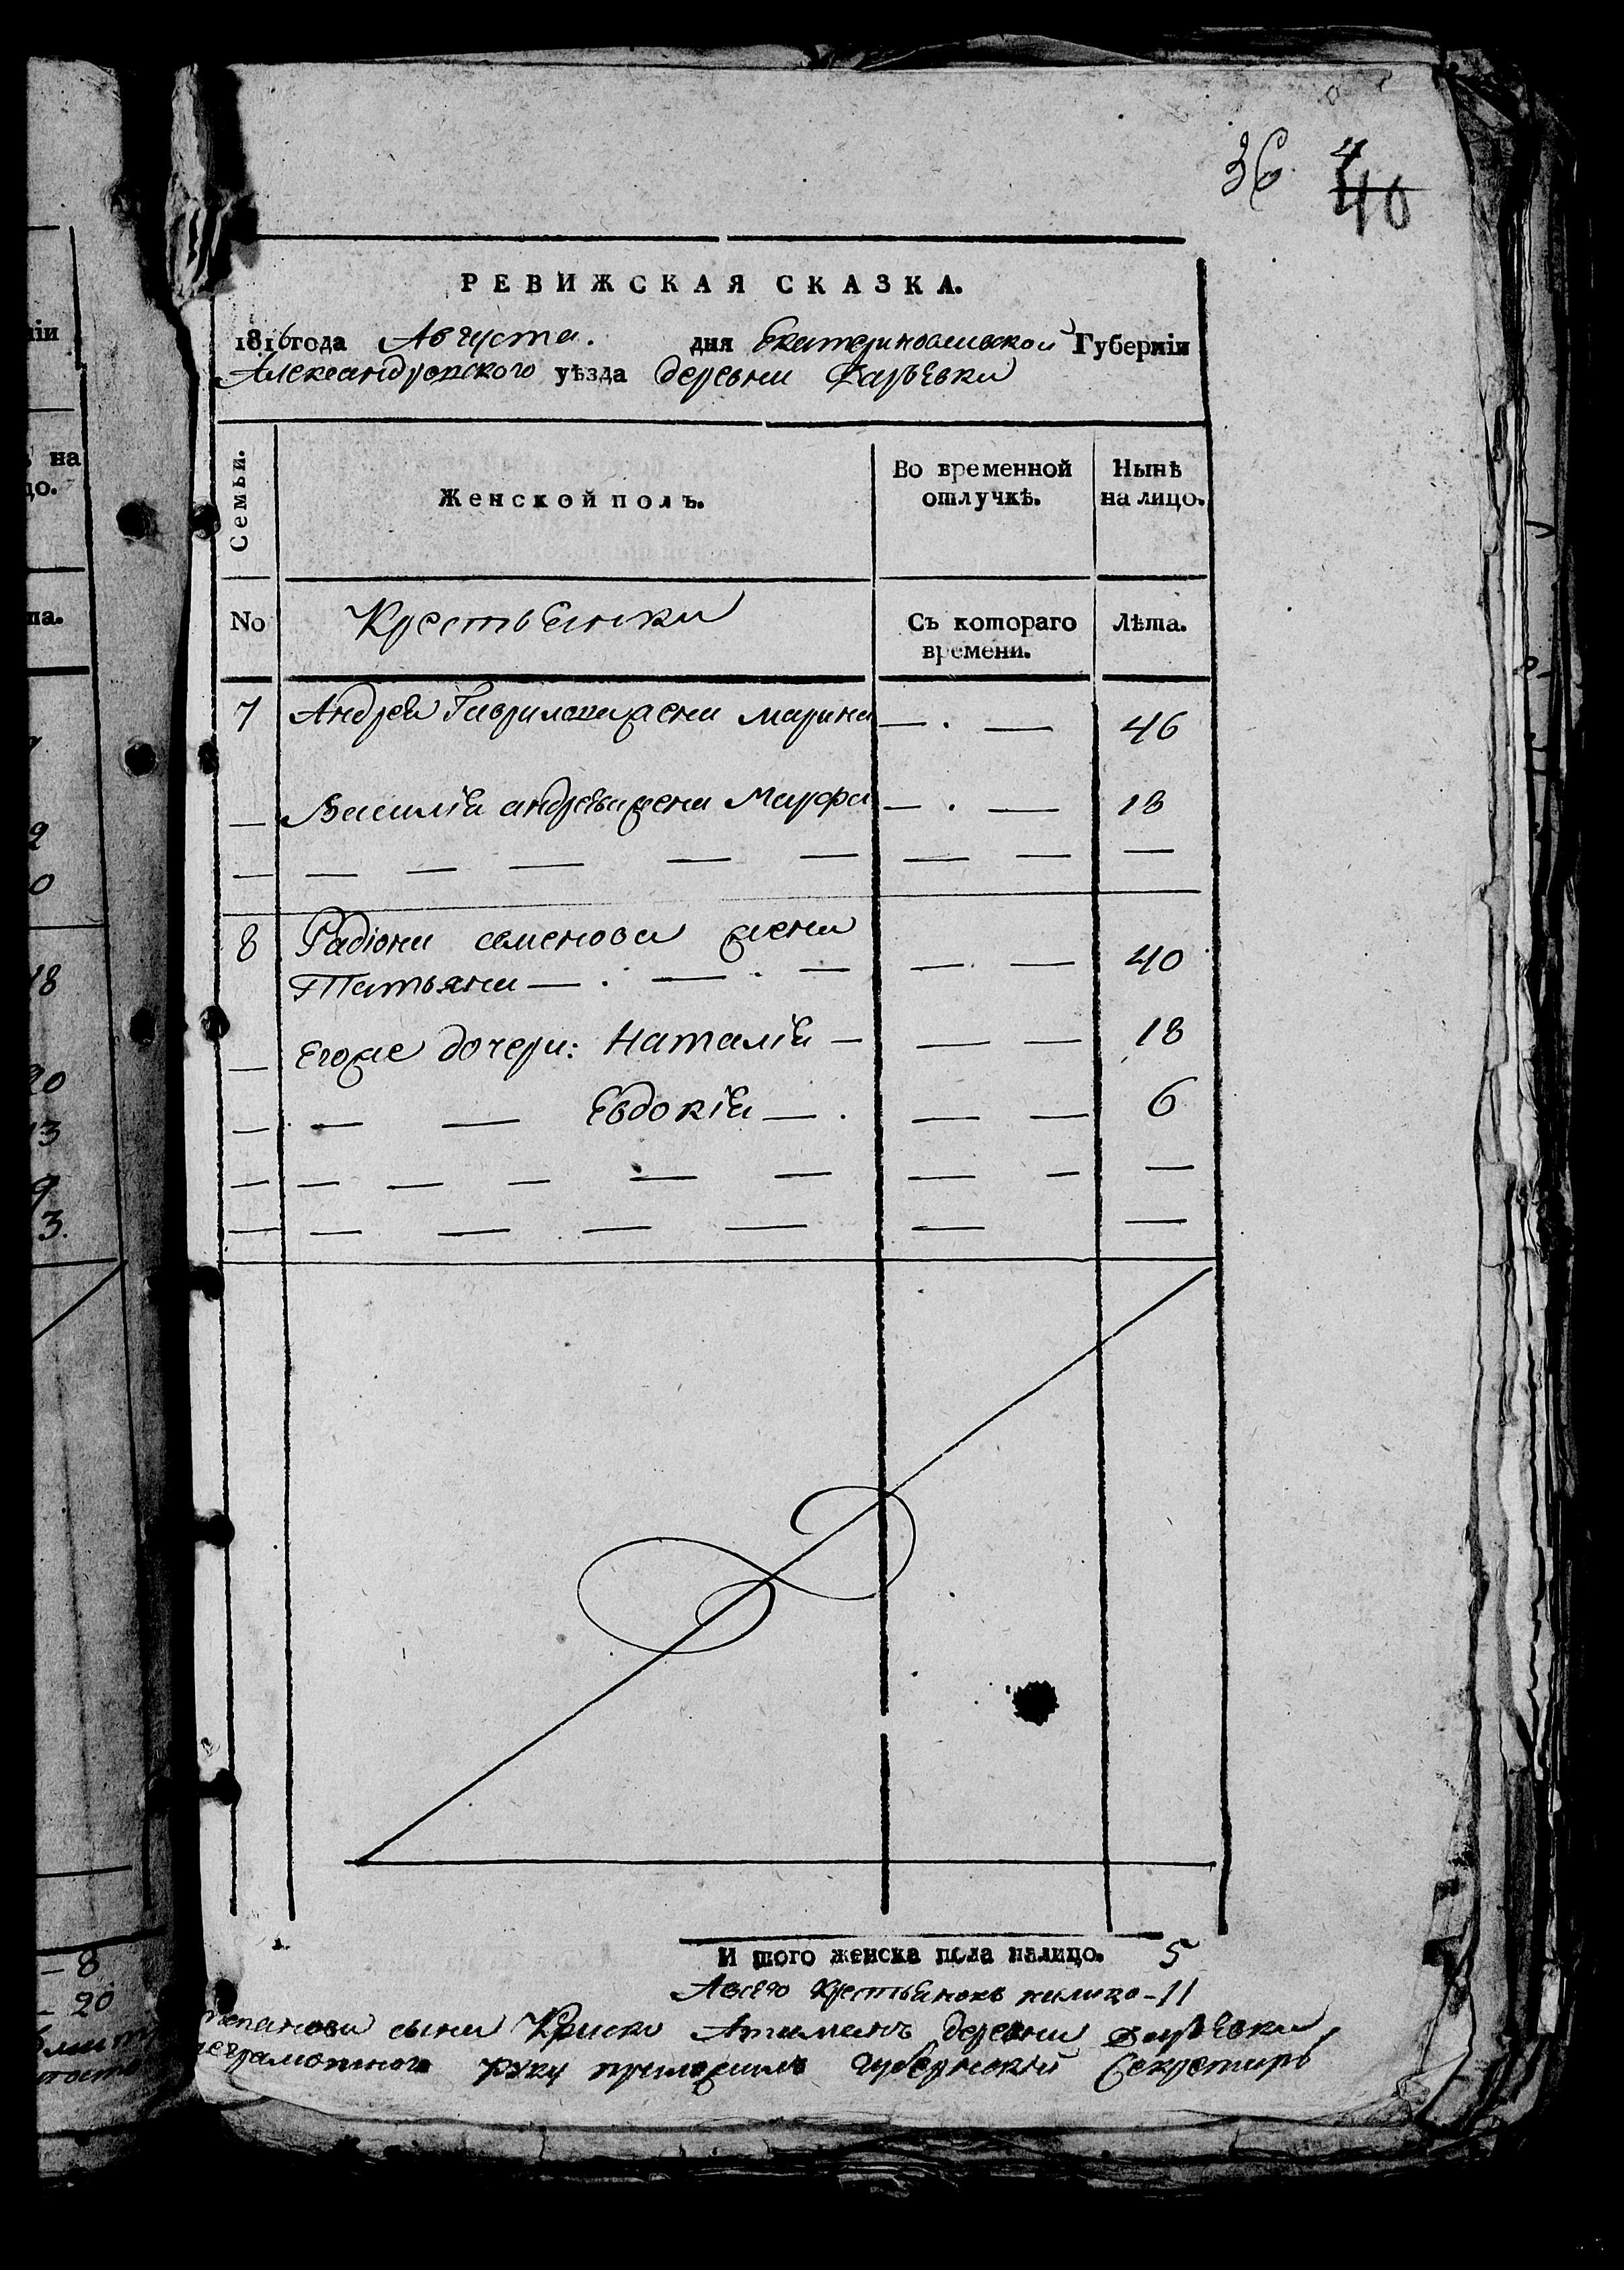 36 4
40
РЕВИЖСКАЯ СКАЗКА.
1816 года Августа. дня Екатеринославской Губернiи
Александровского уѣзда деревни Дарьевки
Семьи. Женской полъ. Во временной отлучкѣ. Нынѣ на лицо.
No Крестьянки Съ котораго времени. Лѣта.
7 Андрея Гаврилова жена марина — . — 46
— Василiя андреева жена Марфа — . — 18
— — — — — — — — —
8 Радiона семенова жена
Татьяна — . — . — — . — 40
— Егоже дочери: Наталiя — — — 18
— . — — Евдокiя — . — — 6
— — — — — — — — —
— — — — — — — —
И того женска пола налицо. 5
А всего крестьянокъ налицо - 11
сына Атаманъ деревни Дарьевки
неграмотного руку приложилъ губернскiй Секретарь
нiи
на
цо.
та.
2
0
18
20
13
9
3.
— 8
— 20